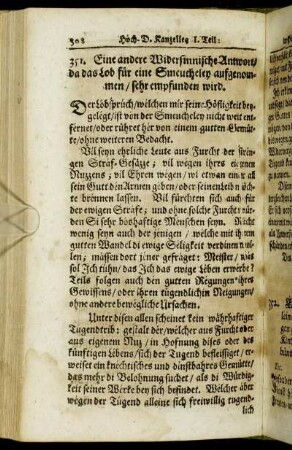 302 Hoch-D. Kanzelley I. Teil:
351. Eine andere Widersinnische Antwort/
da das Lob für eine Smeucheley aufgenom-
men / sehr empfunden wird.
Der Lobspruch/welchen mir seine Höfligkeit bey-
gelegt/ist von der Smeucheley nicht weit ent-
fernet/oder rühret hir von einem gutten Gemü-
te/ohne weiteren Bedacht.
Vil seyn ehrliche Leute aus Furcht der stren-
gen Straf-Gesäze; vil wegen ihres eigenen
Nuzzens; vil Ehren wegen/ wi etwan einer all
sein Gutt den Armen geben/oder seinen Leib
brennen lassen. Vil fürchten sich auch für
der ewigen Strafe; und ohne solche Furcht wür-
den Si sehr boshaftige Menschen seyn. Nicht
wenig seyn auch der jenigen / welche mit ihrem
gutten Wandel di ewige Seligkeit verdinen wol-
len; müssen dort jener gefraget: Meister/ was
sol Jch tuhn/das Jch das ewige Leben erwerbe?
Teils folgen auch den gutten Regungen ihres
Gewissens/oder ihren tugendlichen Neigungen/
ohne andere bewögliche Ursachen.
Unter disen allen scheinet kein wahrhaftiger
Tugendtrib: gestalt der/welcher aus Furcht oder
aus eigenem Nuz/in Hofnung dises oder des
künftigen Lebens/sich der Tugend befleissiget/er-
weiset ein knechtisches und dinstbahres Gemüt/
das mehr di Belohnung suchet/als di Würdig-
keit seiner Werke bey sich befindet. Welcher aber
wegen der Tugend alleine sich freiwillig tugend-
lich